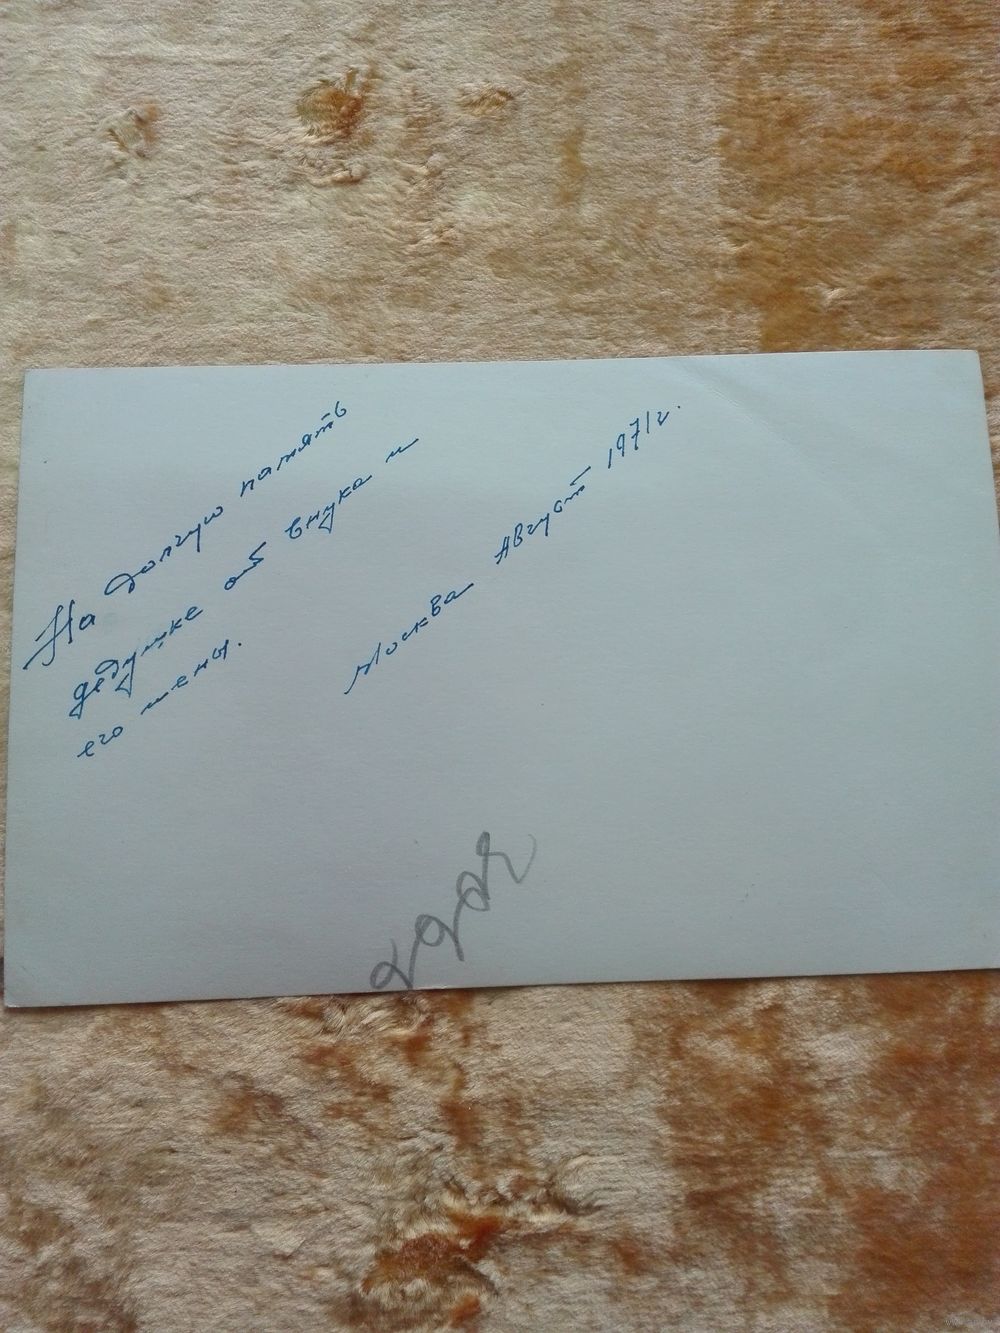 На долгую память
дедушке от внука и
его жены.
Москва Август 1971г.